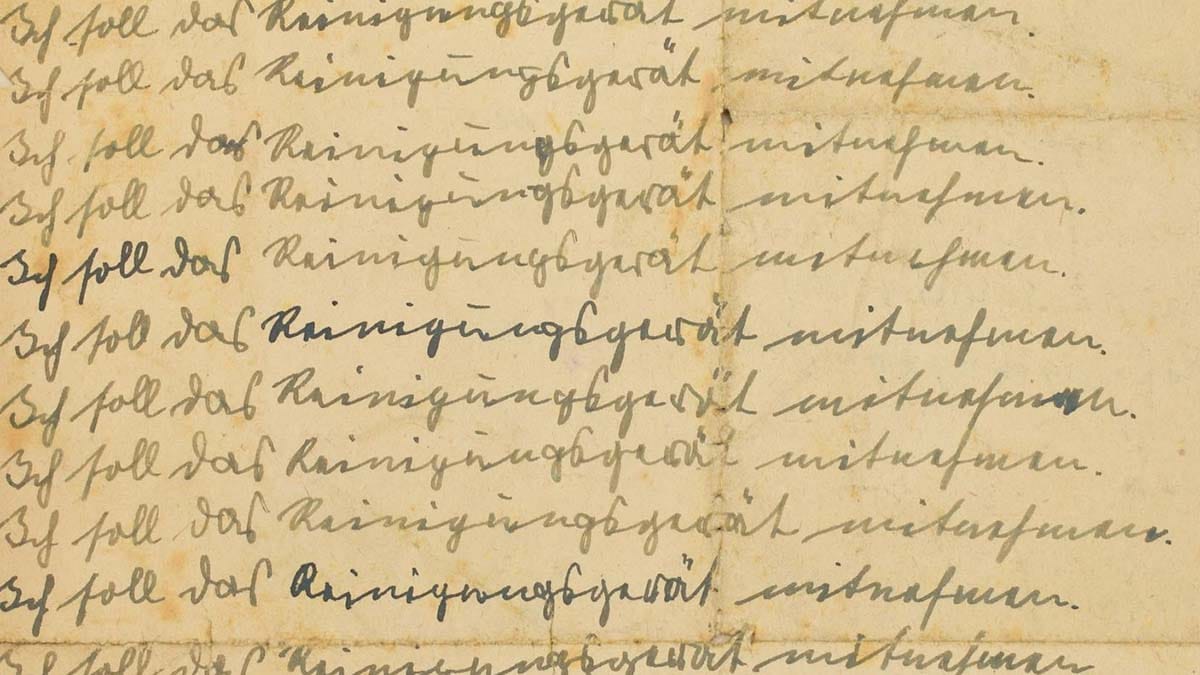 Ich soll das Reinigungsgerät mitnehmen.
Ich soll das Reinigungsgerät mitnehmen.
Ich soll das Reinigungsgerät mitnehmen.
Ich soll das Reinigungsgerät mitnehmen.
Ich soll das Reinigungsgerät mitnehmen.
Ich soll das Reinigungsgerät mitnehmen.
Ich soll das Reinigungsgerät mitnehmen.
Ich soll das Reinigungsgerät mitnehmen.
Ich soll das Reinigungsgerät mitnehmen.
Ich soll das Reinigungsgerät mitnehmen.
Ich soll das Reinigungsgerät mitnehmen